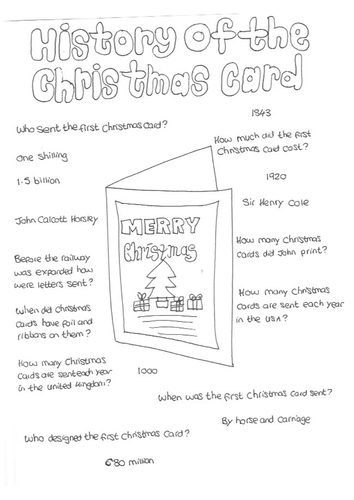 History Of the
Christmas Card
1843
Who sent the first Christmas Card?
How much did the first
Christmas Card cost?
One Shilling
1.5 billion
1920
Sir Henry Cole
John Calcott Horsley
MERRY
Christmas
How many Christmas
Cards did John print?
Before the railway
was expanded how
were letters sent?
How many Christmas
Cards are sent each year
in the USA?
When did Christmas
Cards have foil and
ribbons on them?
How many Christmas
Cards are sent each year
in the United Kingdom?
1000
When was the first Christmas Card sent?
By horse and carriage
Who designed the first Christmas Card?
680 million